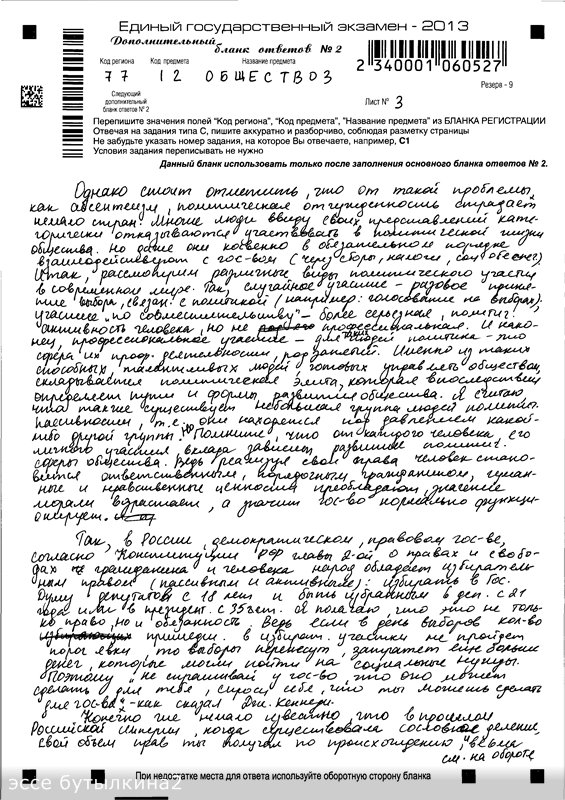 Единый государственный экзамен - 2013
Дополнительный бланк ответов № 2
2 340001 060527
Код региона Код предмета Название предмета
77 12 ОБЩЕСТВОЗ
Резерв - 9
Следующий
дополнительный
бланк ответов № 2
Лист № 3
Перепишите значения полей "Код региона", "Код предмета", "Название предмета" из БЛАНКА РЕГИСТРАЦИИ
Отвечая на задания типа С, пишите аккуратно и разборчиво, соблюдая разметку страницы
Не забудьте указать номер задания, на которое Вы отвечаете, например, С1
Условия задания переписывать не нужно
Данный бланк использовать только после заполнения основного бланка ответов № 2.
Однако стоит отметить, что от такой проблемы,
как абсентеизм, политическая отчужденность страдает
немало стран. Многие люди ввиду своих представлений кате-
горически отказываются участвовать в политической жизни
общества. Но даже они косвенно в обязательном порядке
взаимодействуют с гос-вом (через сборы, налоги, соц обеспеч)
Итак, рассмотрим различные виды политического участия
в современном мире. Так, случайное участие - разовое приня-
тие выбора, связан. с политикой (например: голосование на выборах).
участие "по совместительству" - более серьезная, полит.
активность человека, но не профессиональная. И нако-
нец, профессиональное участие - для таких людей политика - это
сфера их проф. деятельности, род занятий. Именно из таких
способных, талантливых людей готовых управлять обществом,
складывается политическая элита, которая впоследствии
определяет пути и формы развития общества. Я считаю
что также существует небольшая группа людей полит.
пассивности, т.е. они находятся под давлением какой-
либо другой группы. Помните, что от каждого человека, его
личного участия вклада зависит развитие полит.
сферы общества. Ведь реализуя свои права человек стано-
вится ответственным, порядочным гражданином, гуман-
ные и нравственные ценности преобладают, значение
морали возрастает, а значит гос-во нормально функци-
онирует.
Так, в России, демократическом, правовом гос-ве,
согласно Конституции РФ главы 2-ой о правах и свобо-
дах гражданина и человека народ обладает избиратель-
ным правом (пассивным и активным): избирать в Гос.
Думу депутатов с 18 лет и быть избранным в деп. с 21
года или в президент. с 35 лет. Я полагаю, что это не толь-
ко право, но и обязанность. Ведь если в день выборов кол-во
избирающих пришедш. в избират. участки не пройдет
порог явки то выборы перенесут, затратят еще больше
денег, которые могли пойти на социальные нужды.
Поэтому "не спрашивай у гос-во, что оно может
сделать для тебя, спроси себя, что ты можешь сделать
для гос-ва" - как сказал Дж. Кеннеди.
Конечно же немало известно, что в прошлом
Российской империи, когда существовала сословное деление,
свой объем прав ты получал по происхождению,
см. на обороте
При недостатке места для ответа используйте оборотную сторону бланка
эссе бутылкина2